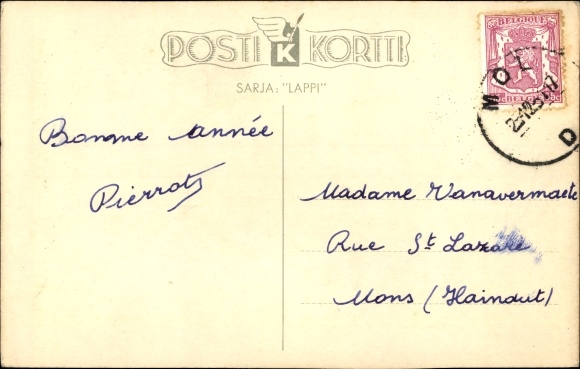 POSTI K KORTTI
SARJA: "LAPPI"
BELGIQUE
BELGIË
MOL
D
Bonne année
Pierrot
Madame Vanavermaete
Rue St Lazare
Mons (Hainaut)